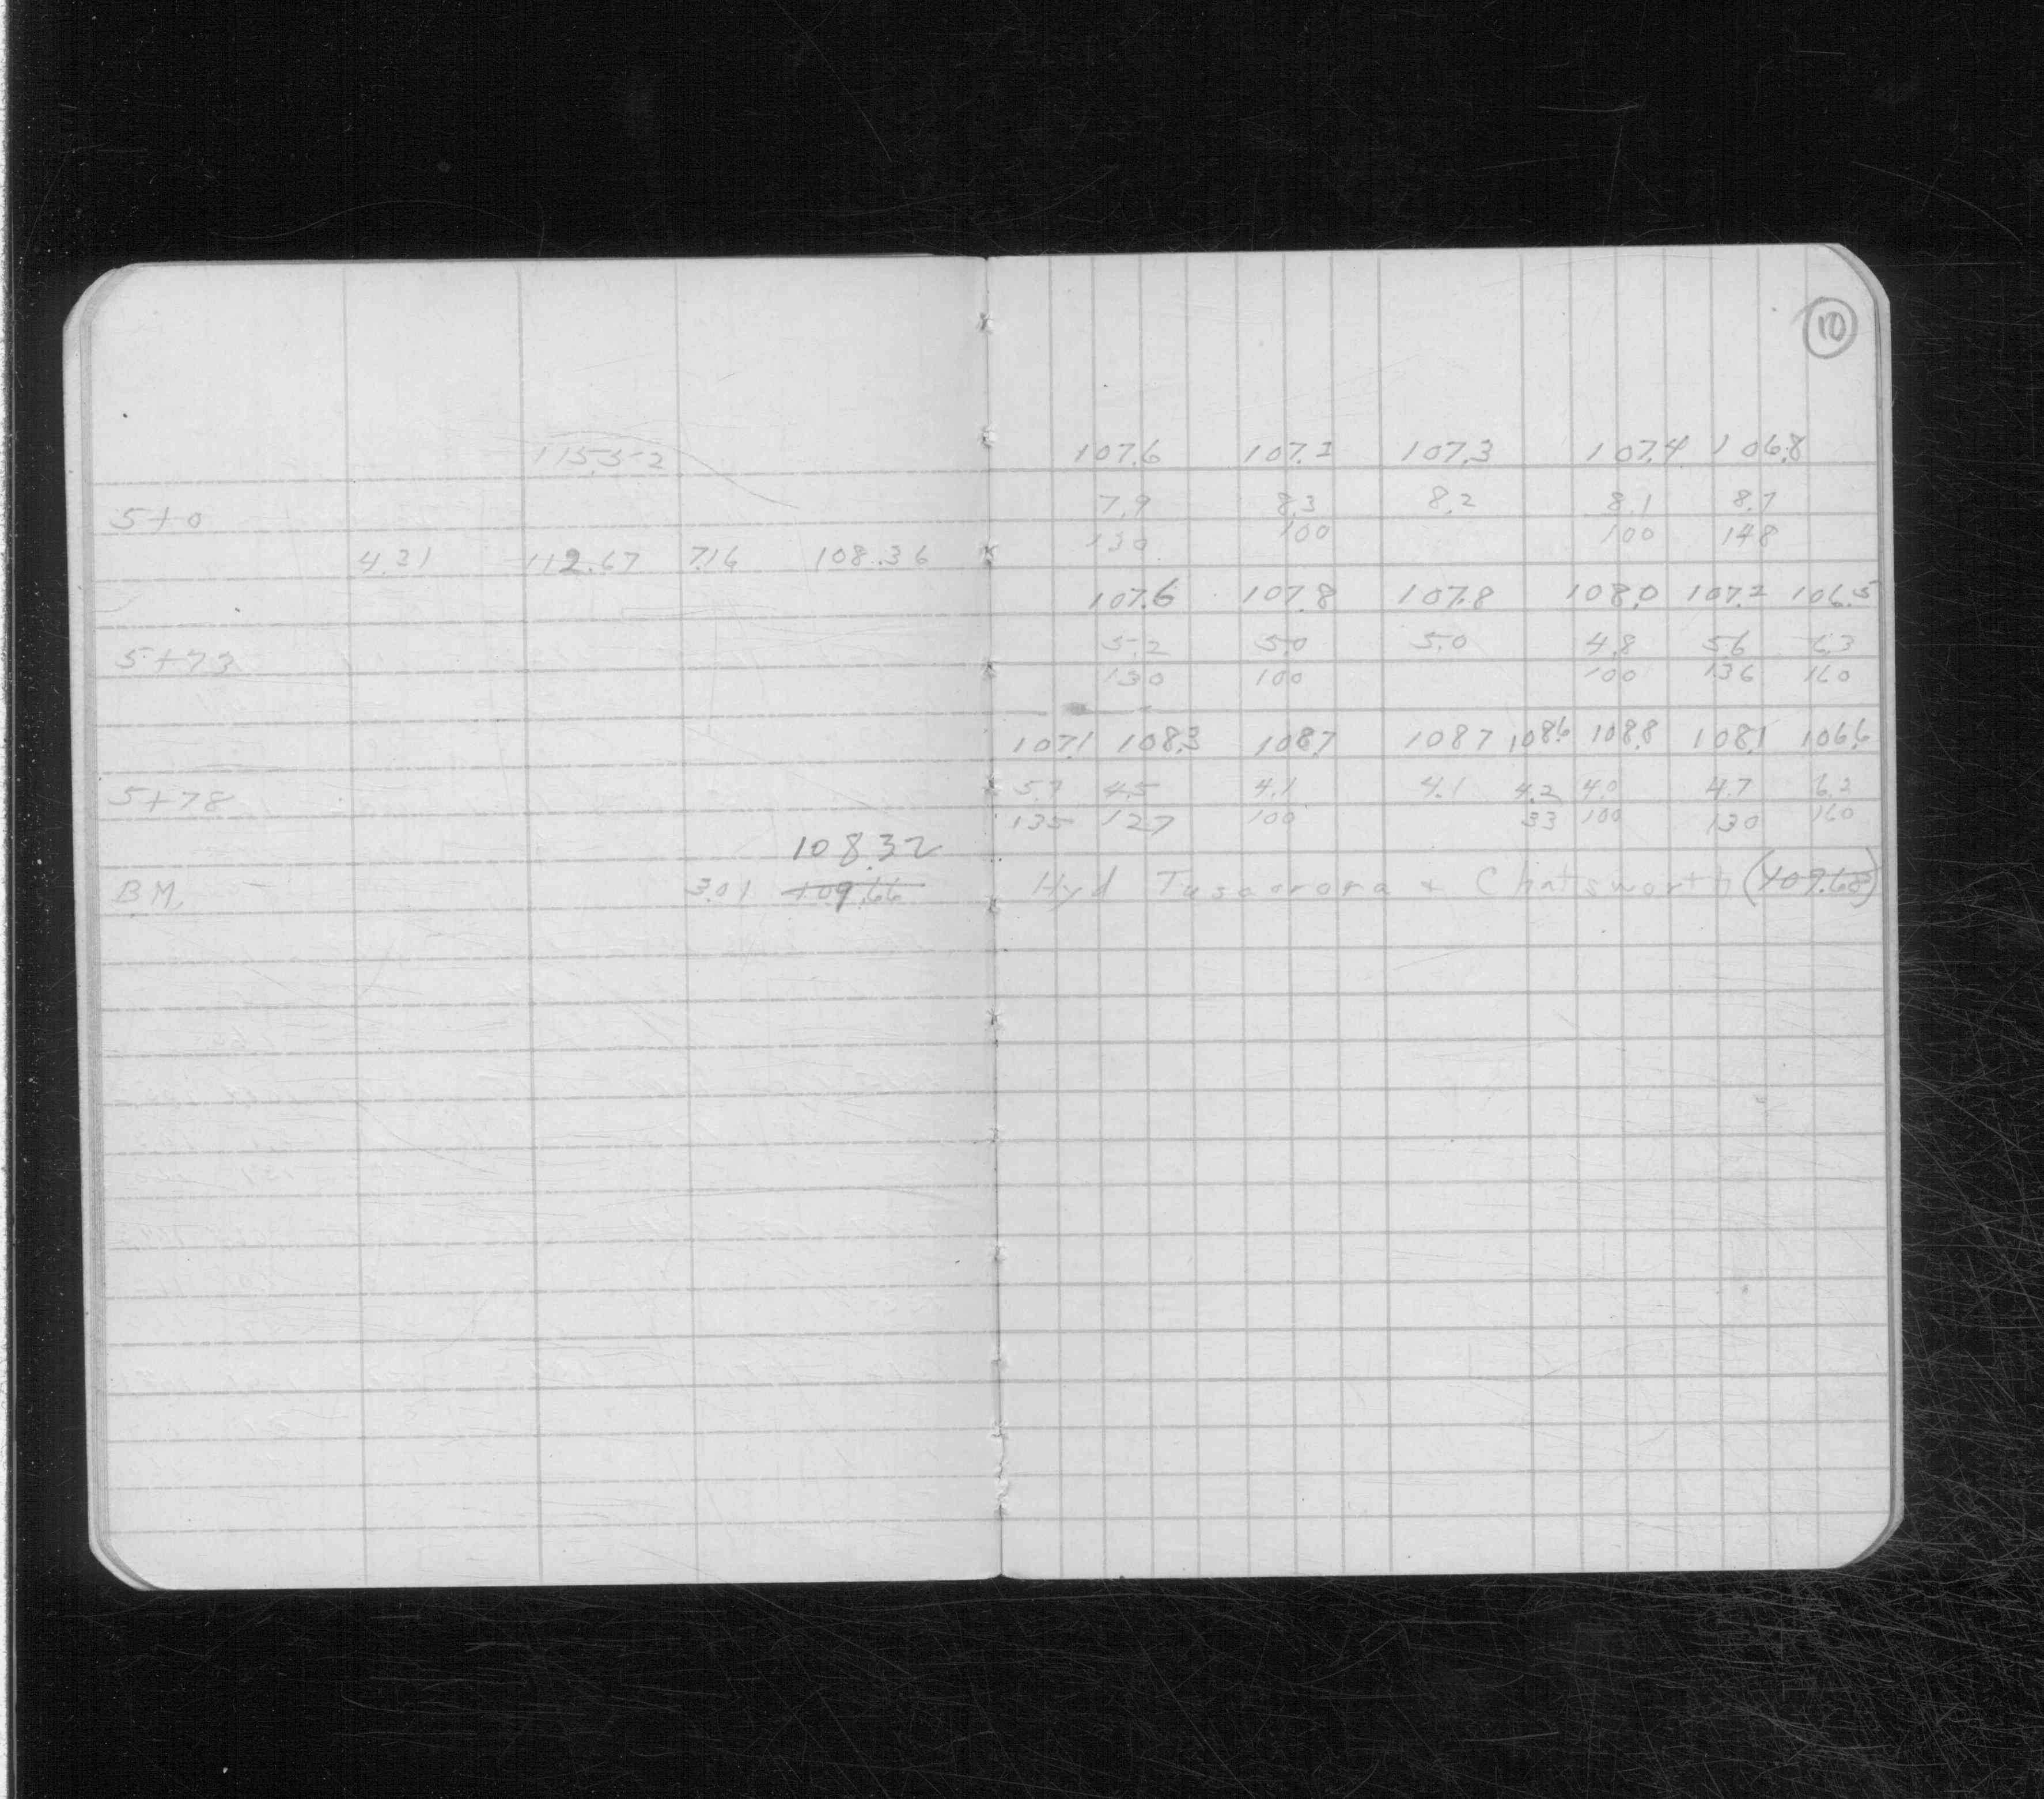 10
115.52 107.6 107.2 107.3 107.4 106.8
5+0 7.9 8.3 8.2 8.1 8.7
130 100 100 148
4.31 112.67 7.16 108.36
107.6 107.8 107.8 108.0 107.2 106.5
5+73 5.2 5.0 5.0 4.8 5.6 6.3
130 100 100 136 160
107.1 108.3 108.7 108.7 108.6 108.8 108.1 106.6
5+78 5.7 4.5 4.1 4.1 4.2 4.0 4.7 6.2
135 127 100 33 100 130 160
108.32
B.M. 3.01 109.66 Hyd Tuscorora + Chatsworth (109.68)